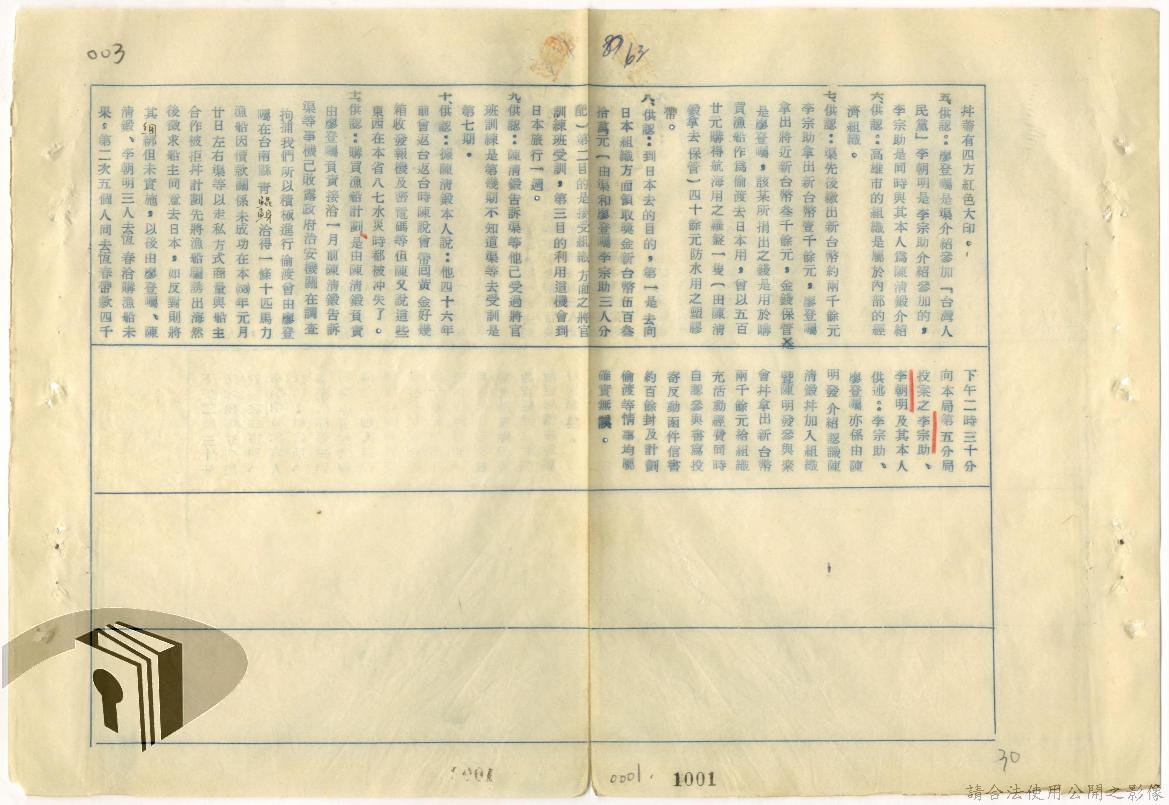 003
89 63
幷蓄有四方紅色大印。
五、供認：廖登𭉨是渠介紹參加「台灣人
民黨」李朝明是李宗助介紹參加的，
李宗助是同時與其本人爲陳清鍛介紹
六、供認：高雄市的組織是屬於內部的經
濟組織。
七、供認：渠先後繳出新台幣約兩千餘元
李宗助拿出新台幣壹千餘元，廖登
拿出將近新台幣叁千餘元，金錢保管
是廖登，該某所捐出之錢是用於購
買漁船作爲偷渡去日本用，曾以五百
廿元購得航海用之羅盤一隻（由陳清
鍛拿去保管）四十餘元防水用之塑膠
帶。
八、供認：到日本去的目的，第一是去向
日本組織方面領取獎金新台幣伍百叁
拾萬元（由渠和廖登李宗助三人分
配）第二目的是接受組織方面之將官
訓練班受訓，第三目的利用這機會到
日本旅行一週。
九、供認：陳清鍛告訴渠等他已受過將官
班訓練是第幾期不知道渠等去受訓是
第七期。
十、供認：據陳清鍛本人說：他四十六年
前曾返台返台時陳說曾帶回黃金好幾
箱收發報機及密電碼等但陳又說這些
東西在本省八七水災時都被沖失了。
二、供認：購買漁船計劃是由陳清鍛負責
由廖登負責接洽一月前陳清鍛告訴
渠等事機已敗露政府治安機關在調查
拘捕我們所以積極進行偷渡曾由廖登
在台南縣青鯤鯓洽得一條十匹馬力
漁船因價款關係未成功在本49年元月
廿日左右渠等以走私方式商量與船主
合作被拒幷計劃先將漁船騙誘出海然
後徵求船主同意去日本，如反對則將
其綑綁但未實施，以後由廖登、陳
清鍛、李朝明三人去恆春洽購漁船未
果，第二次五個人同去恆春帶款四千
下午二時三十分
向本局第五分局
投案之李宗助、
李朝明及其本人
供述：李宗助、
廖登亦係由陳
明發介紹認識陳
清鍛幷加入組織
暨陳明發參與來
會幷拿出新台幣
兩千餘元給組織
充活動經費同時
自認參與書寫投
寄反動函件信書
約百餘封及計劃
偷渡等情事均屬
確實無誤。
0001.
1001
30
請合法使用公開之影像